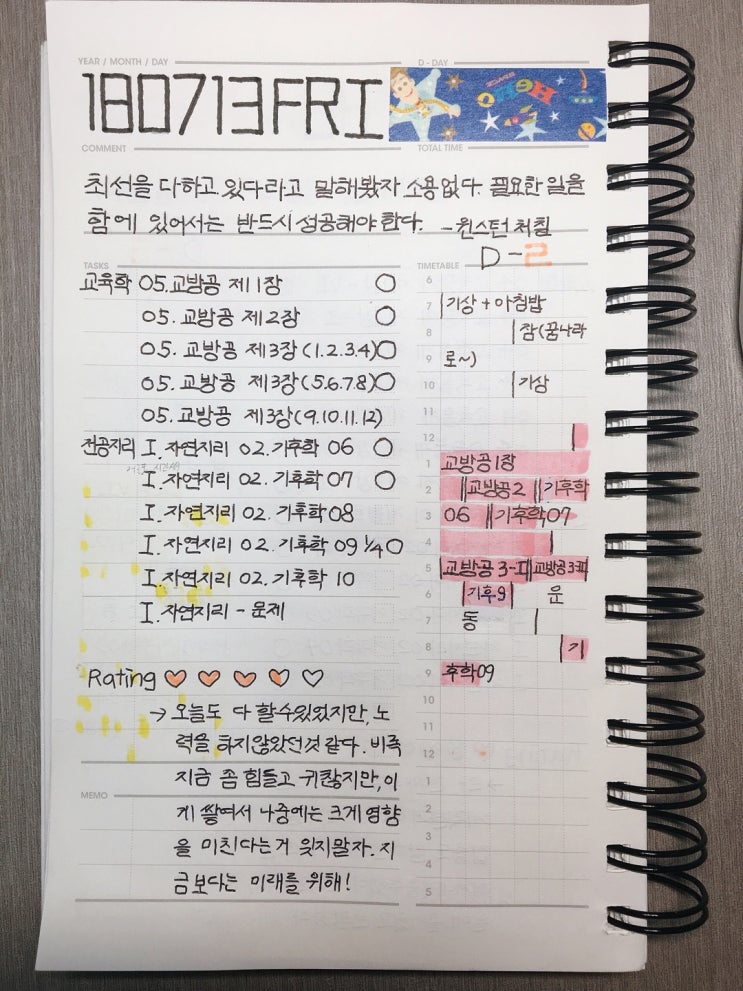 YEAR / MONTH / DAY
D - DAY
180713FRI
HERO
SPACE
COMMENT
TOTAL TIME
최선을 다하고 있다라고 말해봤자 소용없다. 필요한 일을
함에 있어서는 반드시 성공해야 한다. - 윈스턴 처칠
D-2
TASKS
교육학 05.교방공 제1장 O
05. 교방공 제2장 O
05. 교방공 제3장(1.2.3.4)O
05. 교방공 제3장(5.6.7.8)O
05. 교방공 제3장(9.10.11.12)
전공지리 I. 자연지리 02. 기후학 06 O
I. 자연지리 02. 기후학 07 O
I. 자연지리 02. 기후학 08
I. 자연지리 02. 기후학 09 1/4 O
I. 자연지리 02. 기후학 10
I. 자연지리 - 문제
Rating
→ 오늘도 다 할수있었지만, 노
력을 하지않았던것 같다. 비록
지금 좀 힘들고 귀찮지만, 이
게 쌓여서 나중에는 크게 영향
을 미친다는거 잊지말자. 지
금보다는 미래를 위해!
MEMO
TIMETABLE
6
7 기상 + 아침밥
8 잠(꿈나라
9 로~)
10 기상
11
12
1 교방공1장
2 교방공2 기후학
3 06 기후학07
4
5 교방공3-II 교방공3-III
6 기후9 운
7 동
8 기
9 후학09
10
11
12
1
2
3
4
5